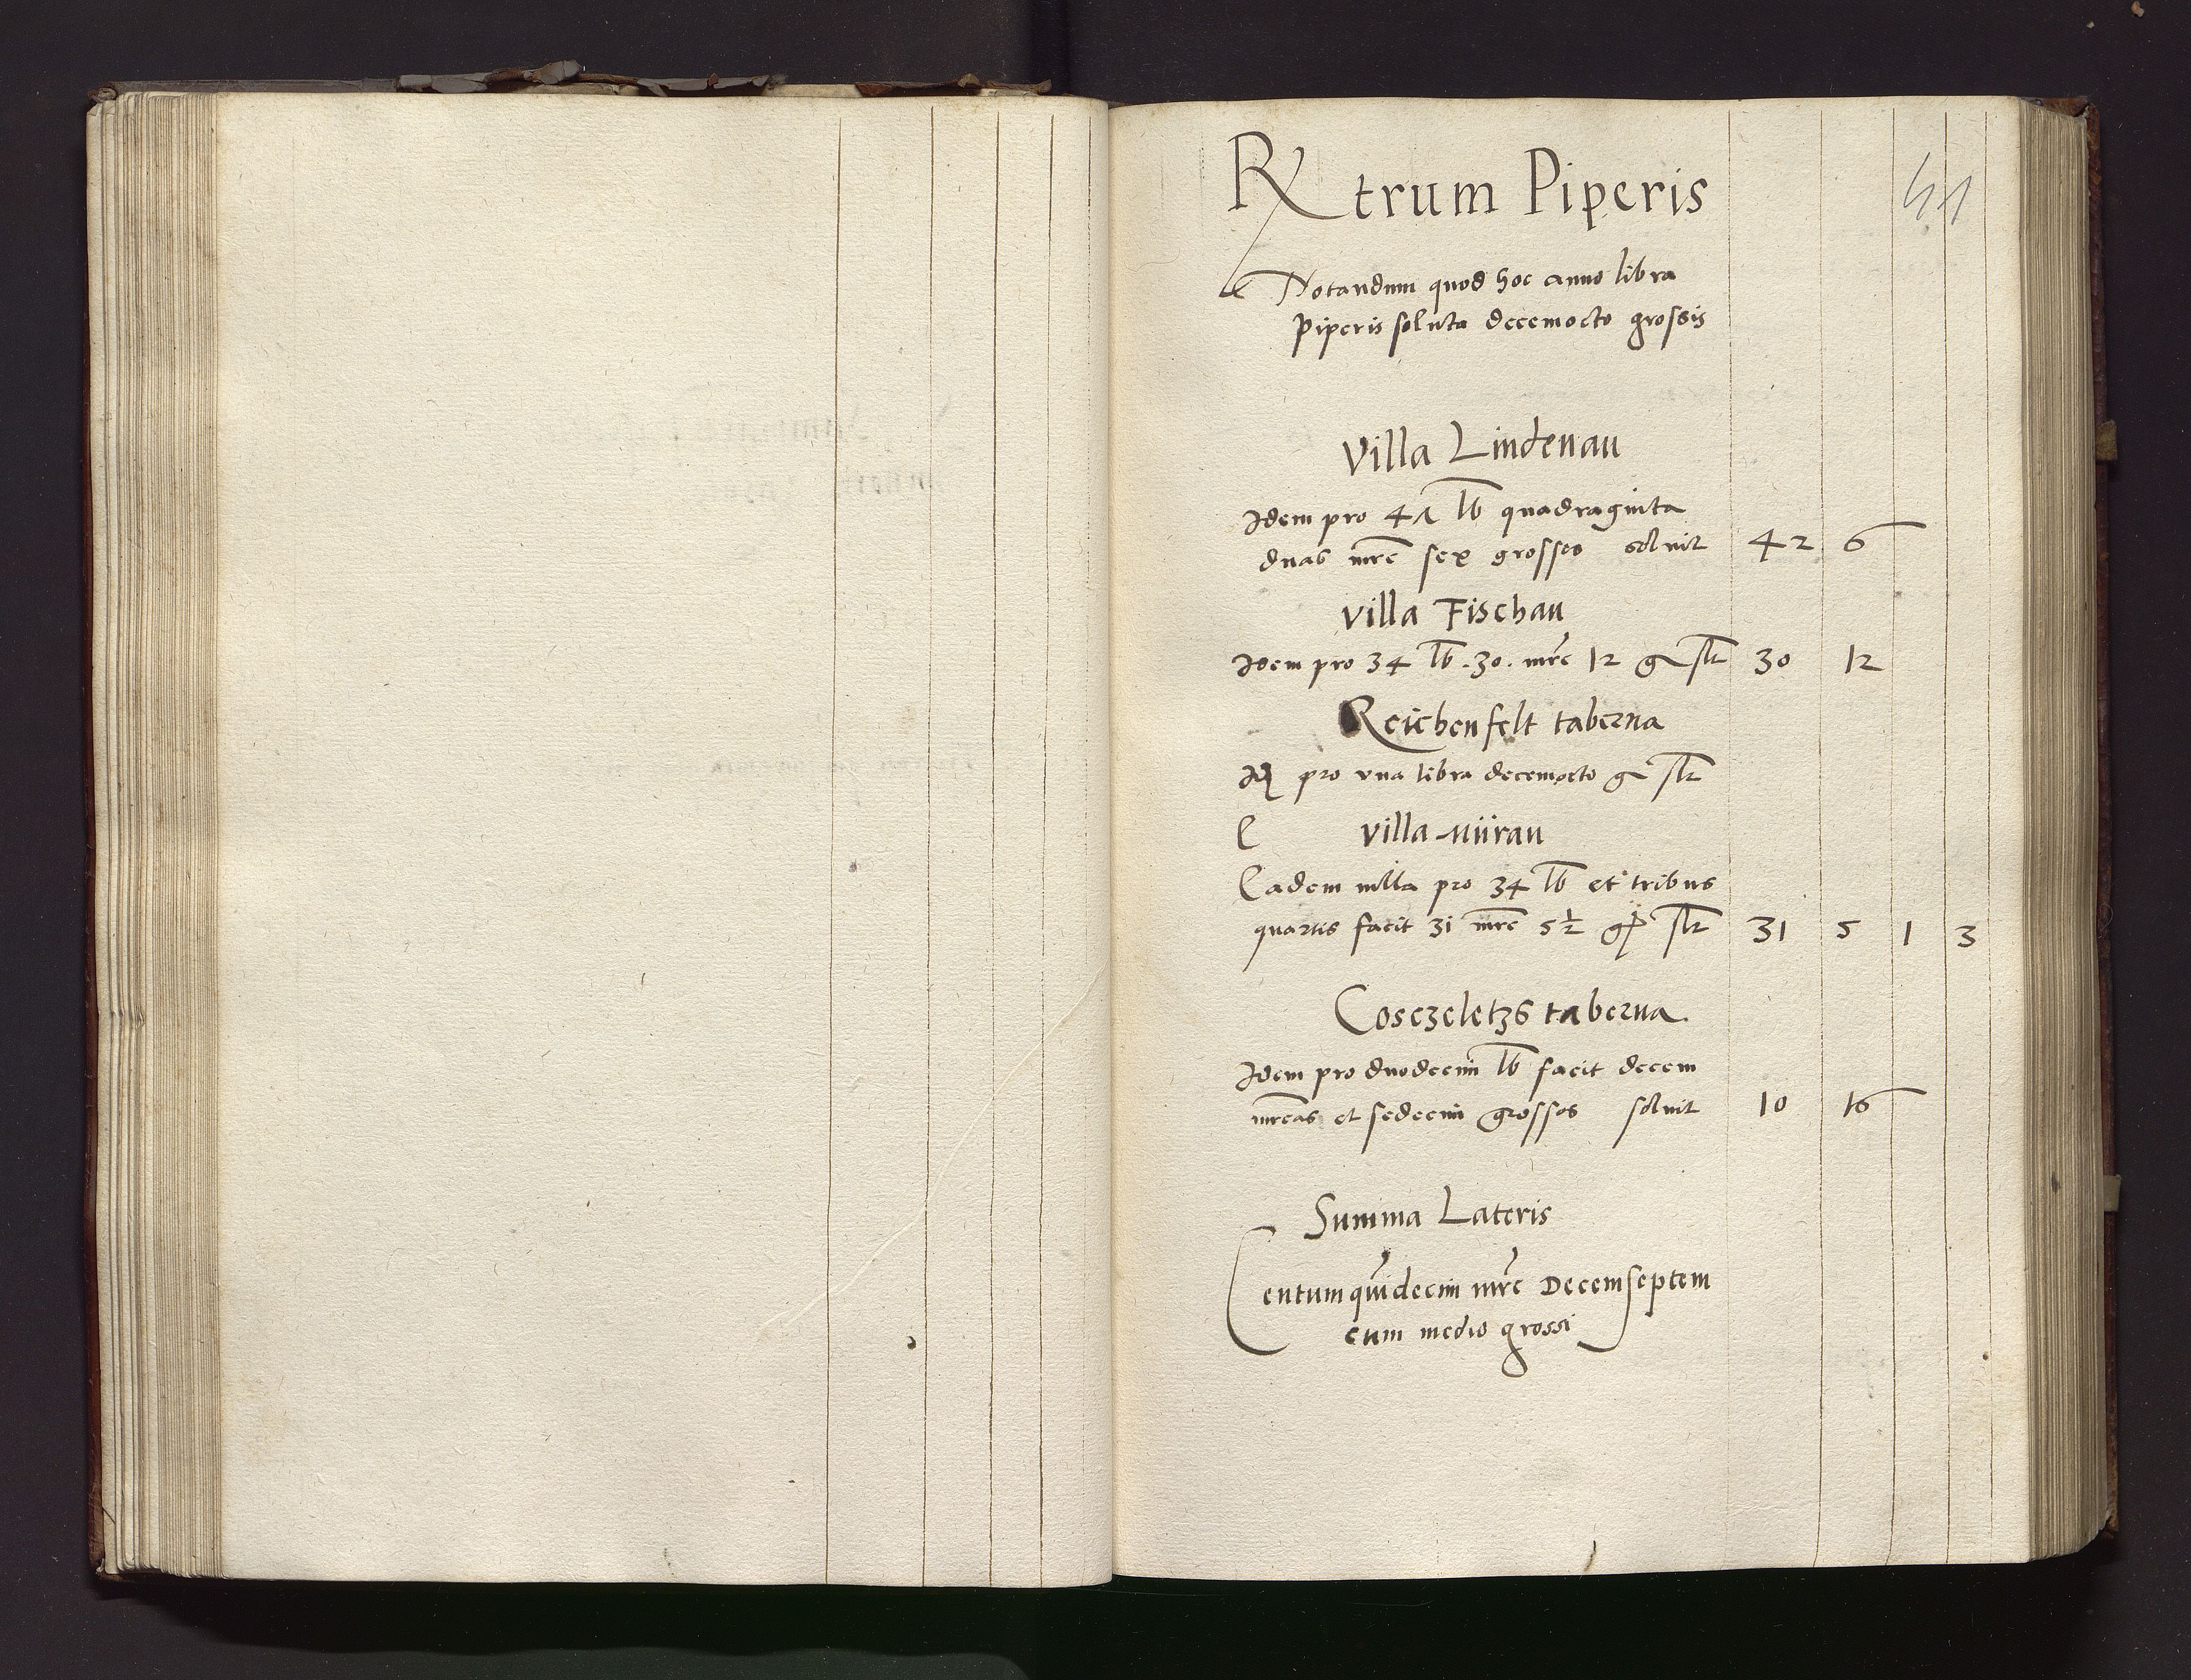 Rx trum Piperis
41
Notandum quod hoc anno libra
Piperis soluta decemocto grossis
Villa Lindenau
Idem pro 47 lb quadraginta
duas mrc sex grossos soluit 42 6
Villa Fischau
Idem pro 34 lb . 30 . mrc 12 g slt 30 12
Reichenfelt taberna
Id pro vna libra decemocto g slt
E villa Nürau
Eadem villa pro 34 lb et tribus
quartis facit 31 mrc 5½ g slt 31 5 1 3
Cosczeletzs taberna
Idem pro duodecim lb facit decem
mrcas et sedecim grossos soluit 10 16
Summa Lateris
Centum quidecim mrc Decemseptem
cum medio grossi